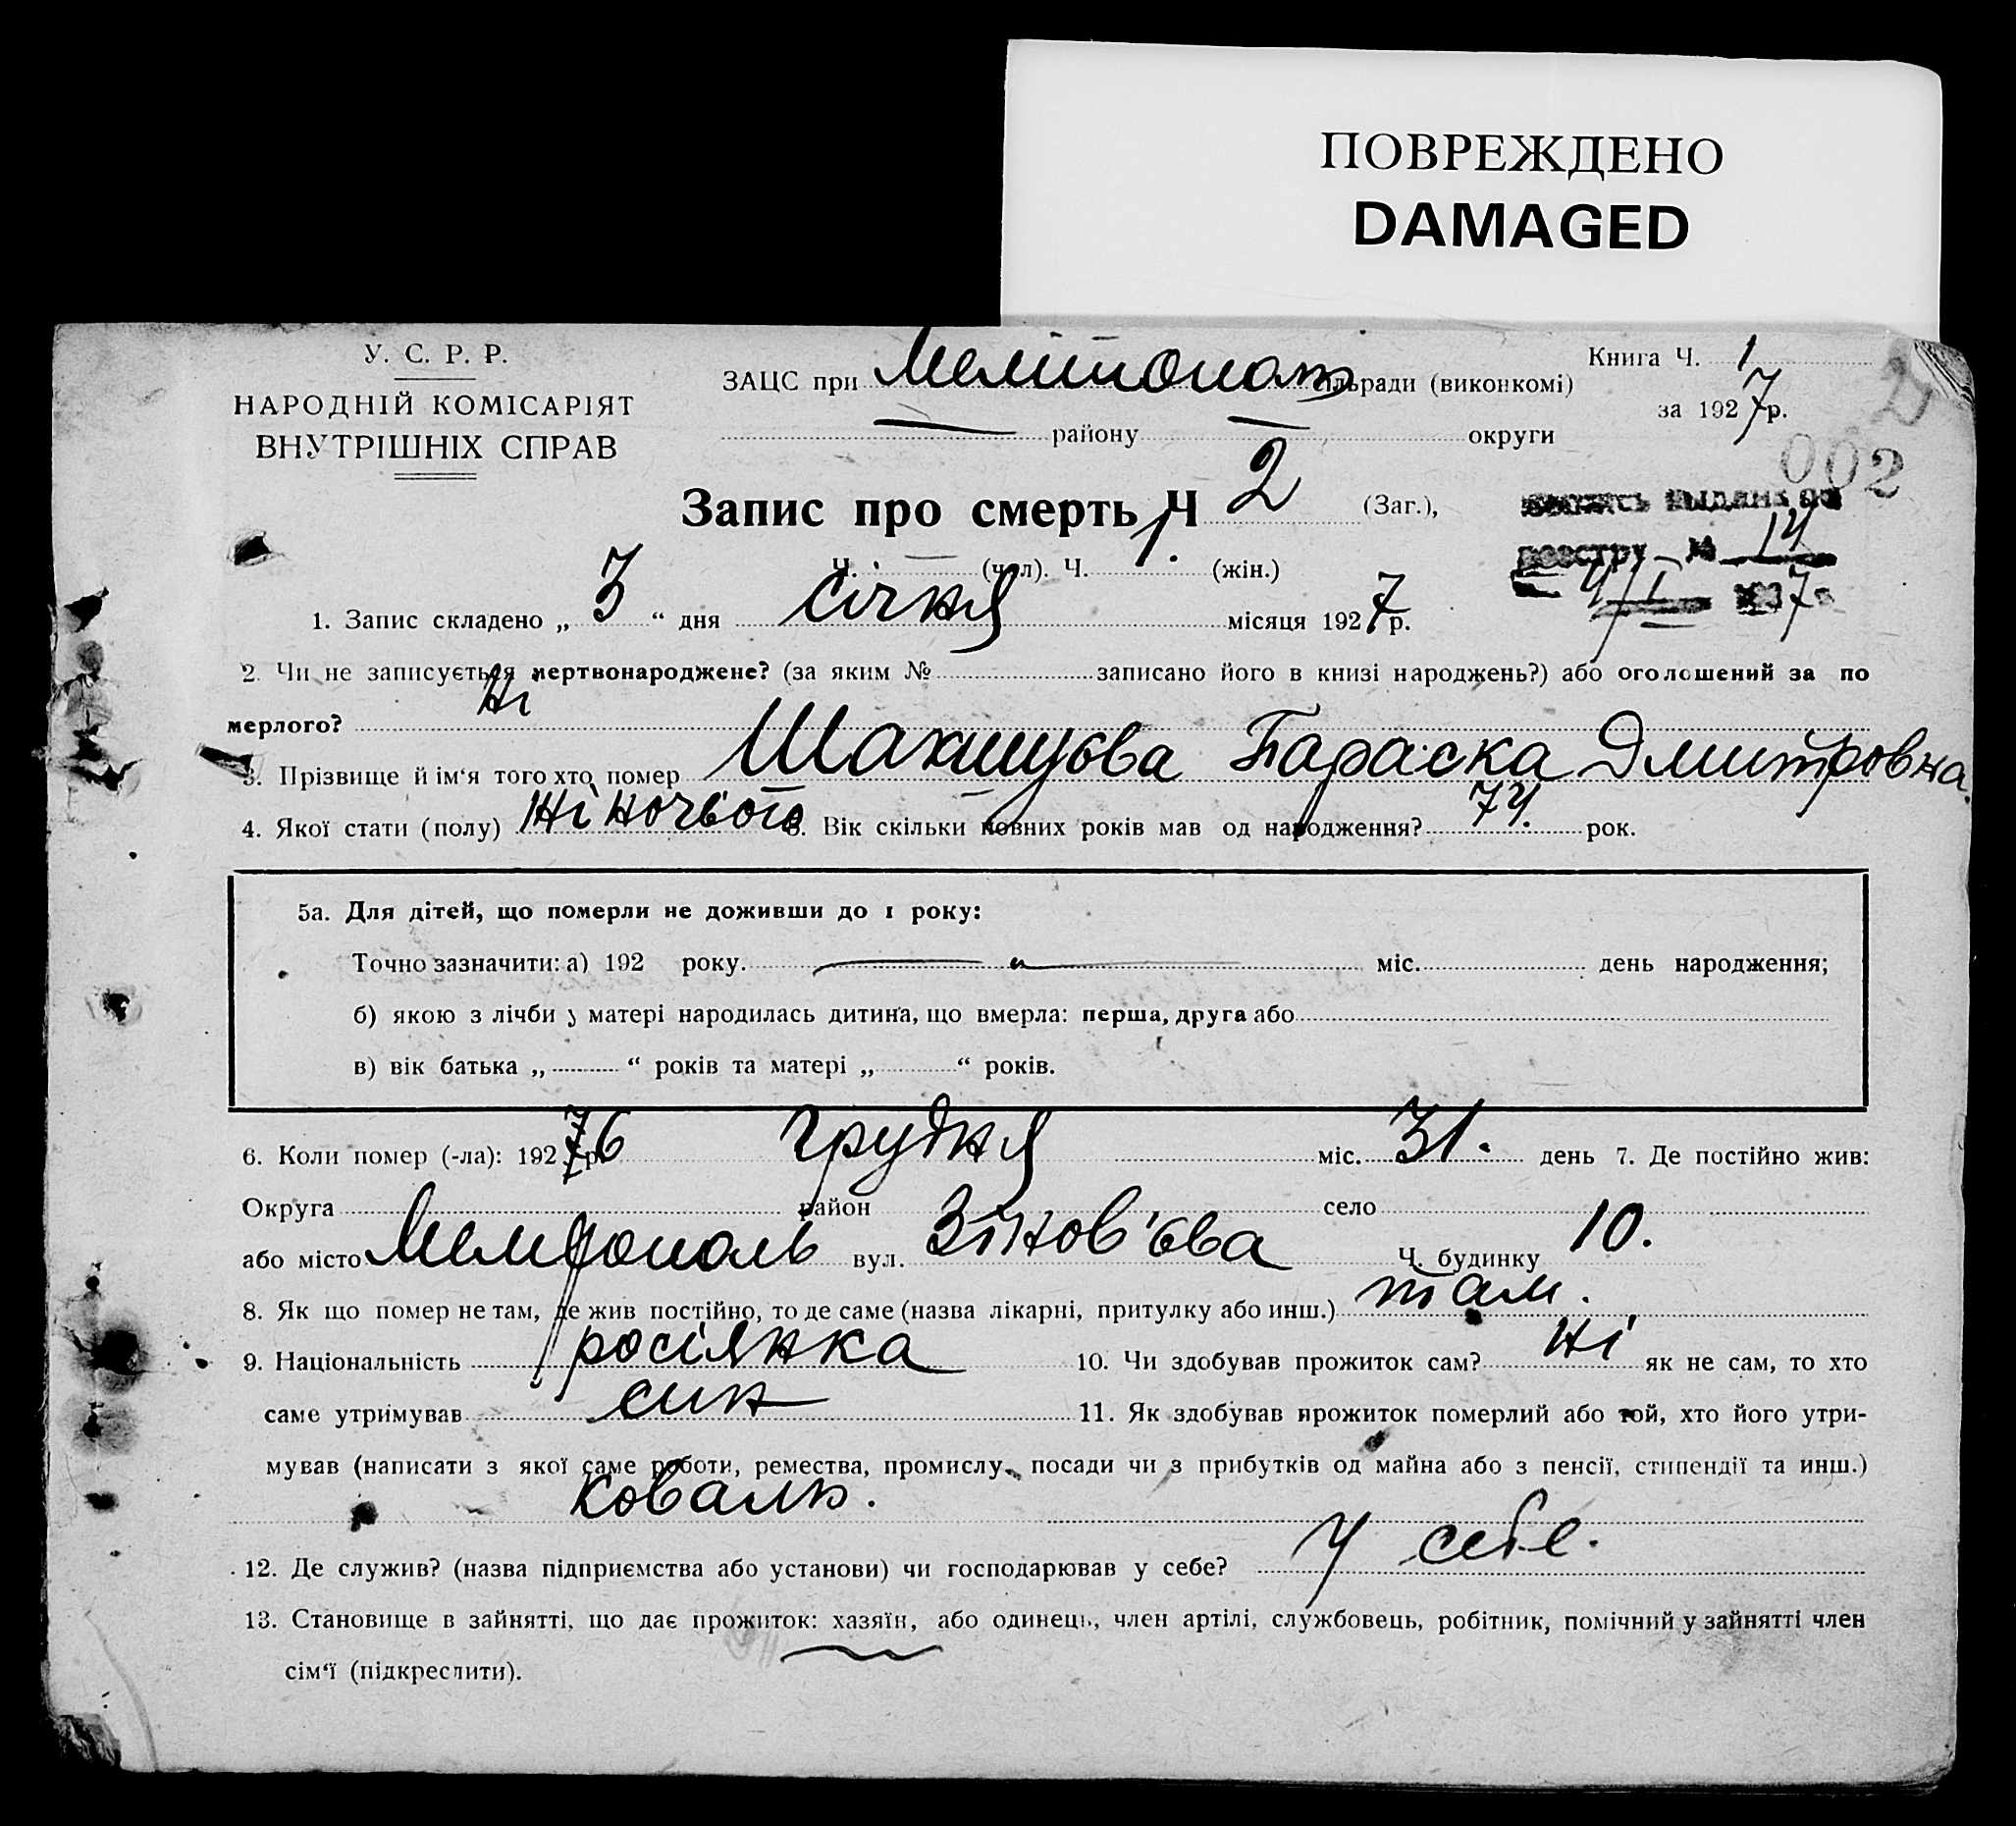 ПОВРЕЖДЕНО
DAMAGED
У. С. Р. Р.
НАРОДНІЙ КОМІСАРІЯТ
ВНУТРІШНІХ СПРАВ
Книга Ч. 1
за 1927 р.
ЗАЦС при Мелітопол ради (виконкомі)
району — округи —
002
Запис про смерть Ч 2 (Заг.),
Ч. — (чол). Ч. 1. (жін.)
реестру № 14
4/I 7
1. Запис складено „ 3 “ дня січня місяця 1927 р.
2. Чи не записується мертвонароджене? (за яким № записано його в книзі народжень?) або оголошений за по
мерлого? Ні
3. Прізвище й ім‘я того хто помер Параска Дмитровна.
4. Якої стати (полу) Жіночого 5. Вік скільки повних років мав од народження? 74. рок.
5а. Для дітей, що померли не доживши до 1 року:
Точно зазначити: а) 192 року. міс. день народження;
б) якою з лічби у матері народилась дитина, що вмерла: перша, друга або
в) вік батька „ “ років та матері „ “ років.
6. Коли помер (-ла): 1926 р. грудня міс. 31. день 7. Де постійно жив:
Округа район село
або місто Мелітополь вул. Зінов'єва Ч. будинку 10.
8. Як що помер не там, де жив постійно, то де саме (назва лікарні, притулку або инш.) там.
9. Національність росіянка 10. Чи здобував прожиток сам? Ні як не сам, то хто
саме утримував син 11. Як здобував прожиток померлий або той, хто його утри-
мував (написати з якої саме роботи, ремества, промислу, посади чи з прибутків од майна або з пенсії, стипендії та инш.)
коваль.
12. Де служив? (назва підприємства або установи) чи господарював у себе? У себе.
13. Становище в зайнятті, що дає прожиток: хазяїн, або одинець, член артілі, службовець, робітник, помічний у зайнятті член
сім‘ї (підкреслити).